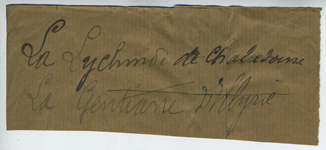 La Lychnide de Chalcédoine
La Gentiane d'Illyrie